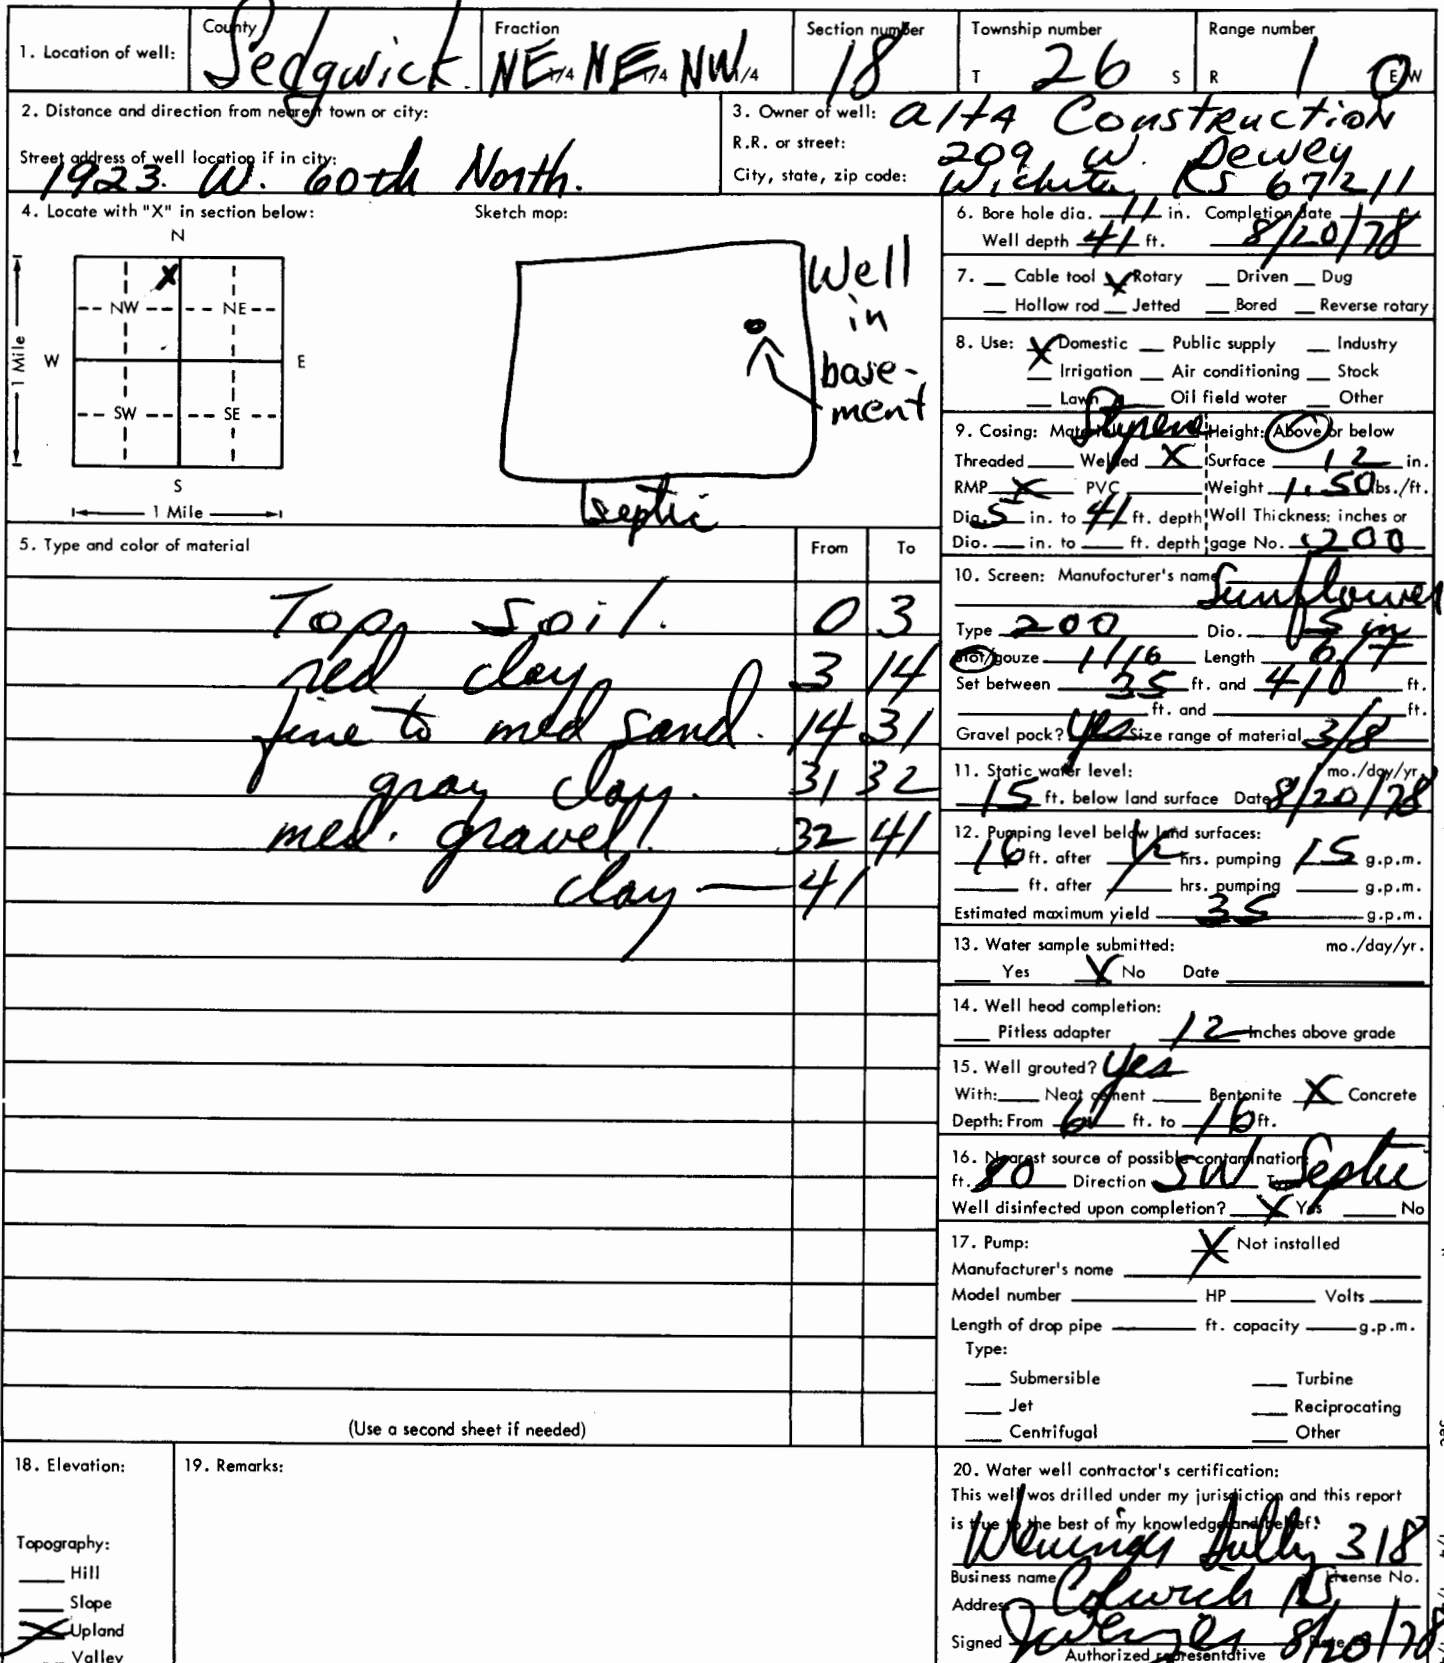 1. Location of well: County Sedgwick. Fraction NE 1/4 NE 1/4 NW 1/4 Section number 18 Township number T 26 S Range number R 1 E W
2. Distance and direction from nearest town or city:
Street address of well location if in city:
1923. W. 60th North.
3. Owner of well: Alta Construction
R.R. or street: 209 W. Dewey
City, state, zip code: Wichita Ks 67211
4. Locate with "X" in section below: Sketch map:
N
X
NW NE
W E
SW SE
S
1 Mile
1 Mile
Well
in
base-
ment
Septic
5. Type and color of material From To
Top soil. 0 3
red clay 3 14
fine to med sand. 14 31
gray clay. 31 32
med. gravel 32 41
clay — 41
(Use a second sheet if needed)
6. Bore hole dia. 11 in. Completion date
Well depth 41 ft. 8/20/78
7. Cable tool X Rotary Driven Dug
Hollow rod Jetted Bored Reverse rotary
8. Use: X Domestic Public supply Industry
Irrigation Air conditioning Stock
Lawn Oil field water Other
9. Casing: Material Styrene Height: Above or below
Threaded Welded X Surface 12 in.
RMP X PVC Weight 1.50 lbs./ft.
Dia. 5 in. to 41 ft. depth Wall Thickness: inches or
Dia. in. to ft. depth gage No. .200
10. Screen: Manufacturer's name
Sunflower
Type 200 Dia. 5 in
Slot/gauze 1/16 Length
Set between 35 ft. and ft.
ft. and ft.
Gravel pack? Yes Size range of material 3/8
11. Static water level: mo./day/yr.
15 ft. below land surface Date 8/20/78
12. Pumping level below land surfaces:
16 ft. after 1/2 hrs. pumping 15 g.p.m.
ft. after hrs. pumping g.p.m.
Estimated maximum yield 35 g.p.m.
13. Water sample submitted: mo./day/yr.
Yes X No Date
14. Well head completion:
Pitless adapter 12 Inches above grade
15. Well grouted? Yes
With: Neat cement Bentonite X Concrete
Depth: From 6 ft. to 16 ft.
16. Nearest source of possible contamination:
ft. 80 Direction SW Type Septic
Well disinfected upon completion? X Yes No
17. Pump: X Not installed
Manufacturer's name
Model number HP Volts
Length of drop pipe ft. capacity g.p.m.
Type:
Submersible Turbine
Jet Reciprocating
Centrifugal Other
18. Elevation:
Topography:
Hill
Slope
X Upland
Valley
19. Remarks:
20. Water well contractor's certification:
This well was drilled under my jurisdiction and this report
is true to the best of my knowledge and belief.
318
Business name License No.
Address Colwich Ks
Signed 8/20/78 Date
Authorized representative